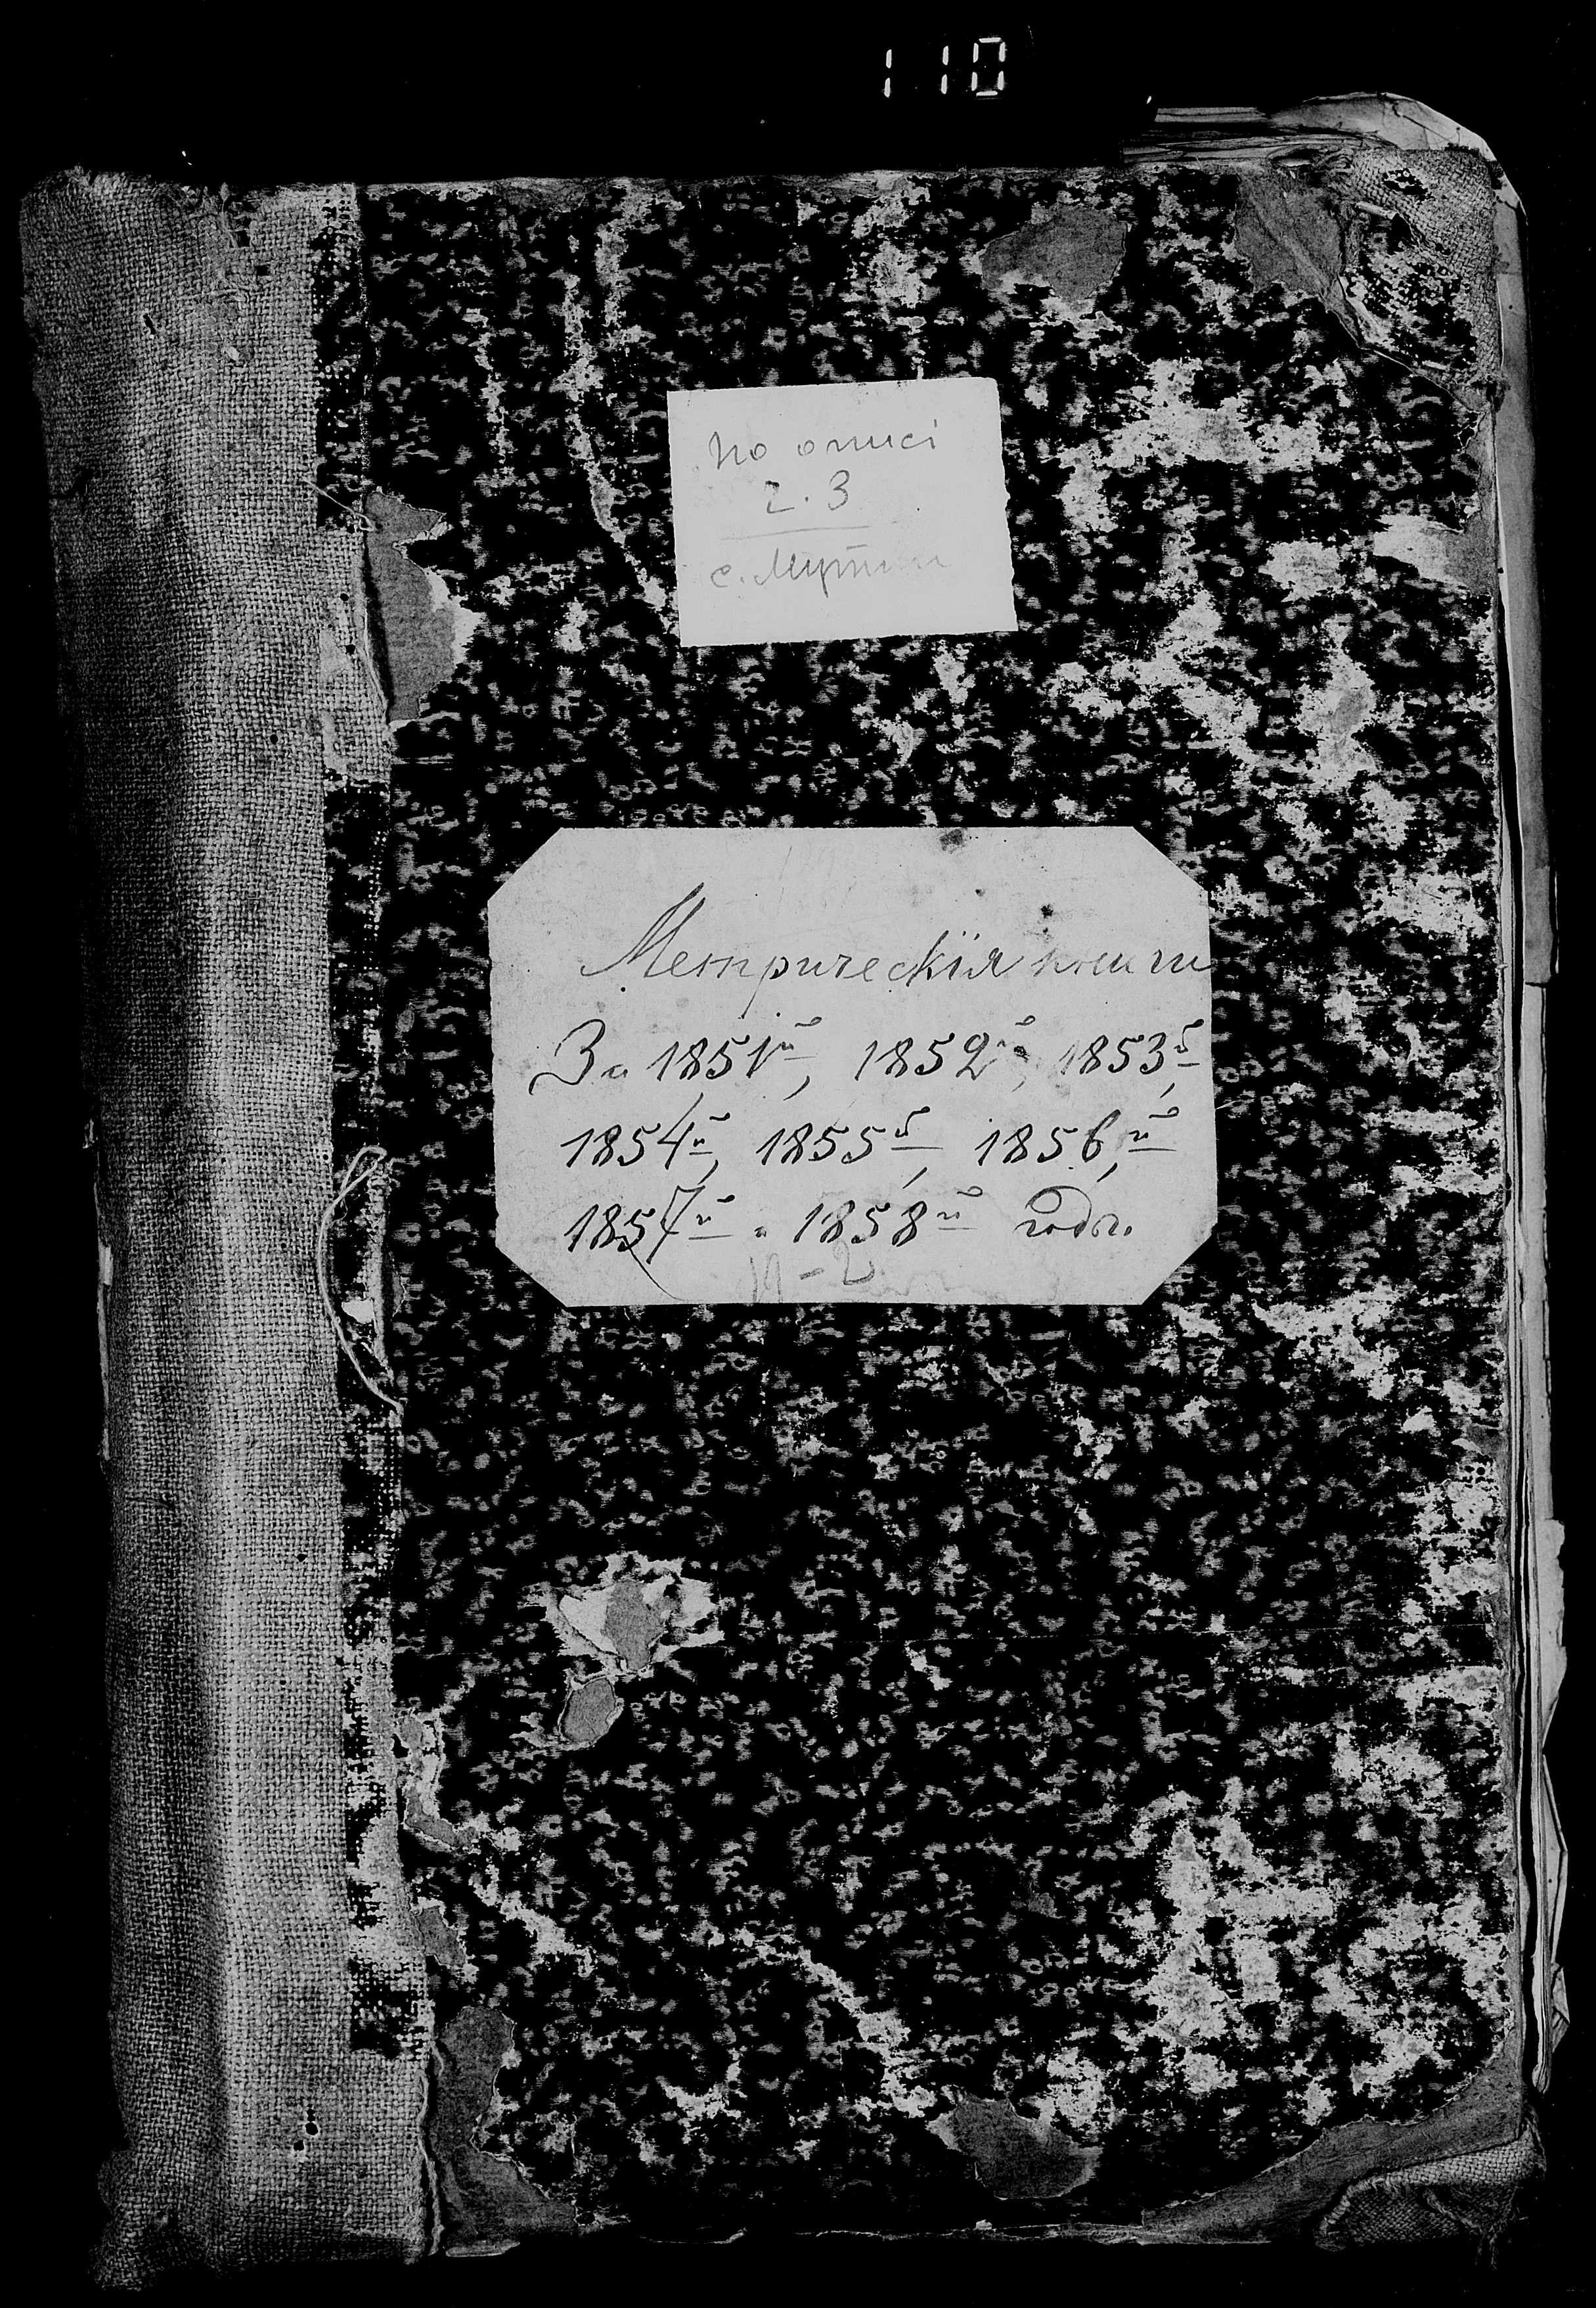 110
по описі
2.3
с. Мутин
Метрическія книги
За 1851й, 1852й, 1853й,
1854й, 1855й, 1856,й
1857й и 1858й года.